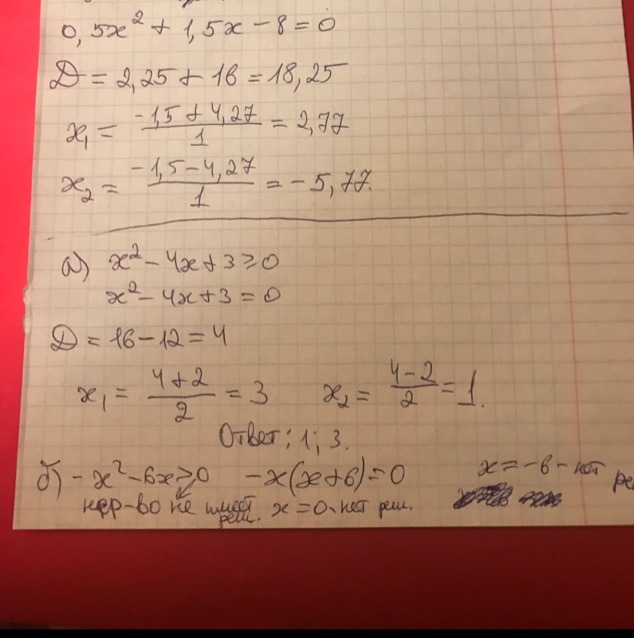 0,5x² + 1,5x - 8 = 0
D = 2,25 + 16 = 18,25
x₁ = (-1,5 + 4,27)/1 = 2,77
x₂ = (-1,5 - 4,27)/1 = -5,77.
а) x² - 4x + 3 ≥ 0
x² - 4x + 3 = 0
D = 16 - 12 = 4
x₁ = (4 + 2)/2 = 3 x₂ = (4 - 2)/2 = 1.
Ответ: 1; 3.
б) -x² - 6x ≥ 0 -x(x + 6) = 0 x = -6 - нет ре
нер-во не имеет реш. x = 0 - нет реш.